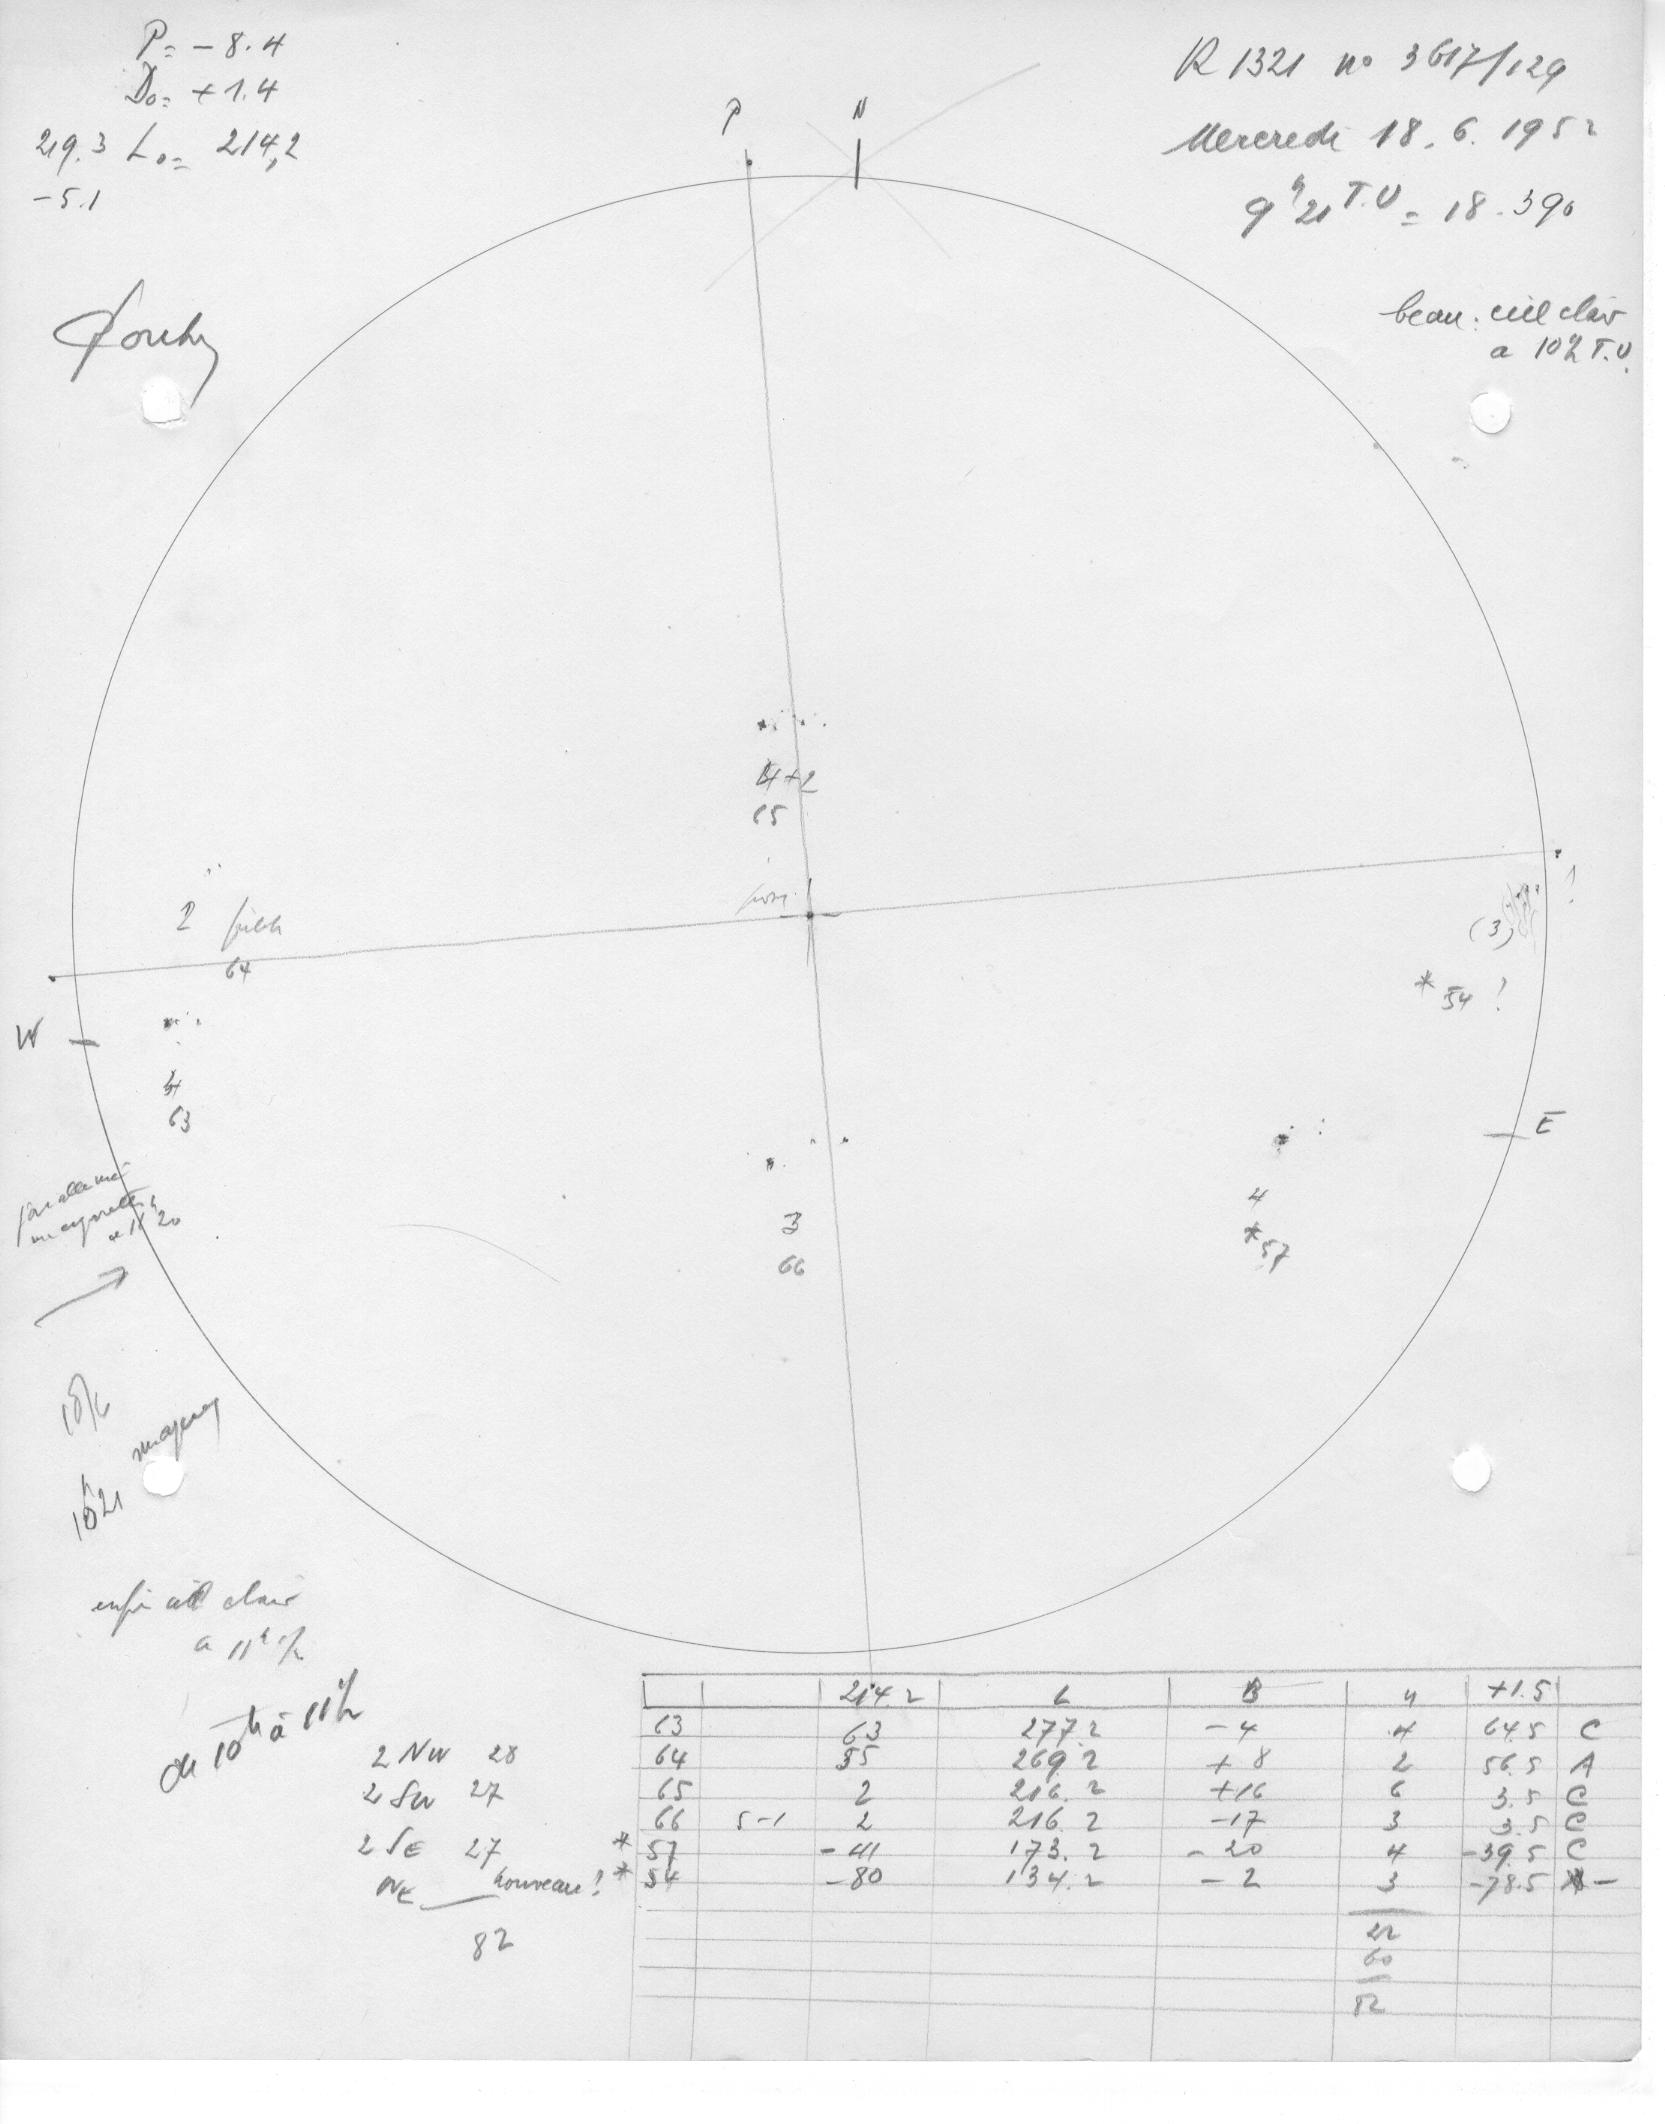 P = - 8.4
D₀ = + 1.4
219.3 L₀ = 214,2
- 5.1
R 1321 no 3617/129
Mercredi 18. 6. 1952
9h 21 T.U = 18.390
beau: ciel clair
a 10½ T.U.
P N
4+2
65
2 faible
64
(3)
* 54 !
W
4
63
E
4
* 57
3
66
a 11h 1/2
de 10h à 11½
2 NW 28
2 SW 27
2 SE 27
NE nouveau!
82
214.2 L B n +1.5
63 63 277.2 - 4 4 64.5 C
64 55 269.2 + 8 2 56.5 A
65 2 216.2 +16 6 3.5 C
66 5-1 2 216.2 -17 3 3.5 C
* 57 - 41 173.2 - 20 4 -39.5 C
* 54 - 80 134.2 - 2 3 -78.5 -
22
60
82